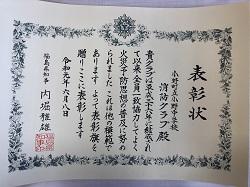 表彰状
小野町立小野中学校
消防クラブ殿
貴クラブは平成二十八年に結成され
て以来全員一致協力してよく
火災予防思想の普及に努め
られましたこれは他の模範で
あります よって表彰旗を
贈りここに表彰します
令和元年六月八日
福島県知事 内堀雅雄